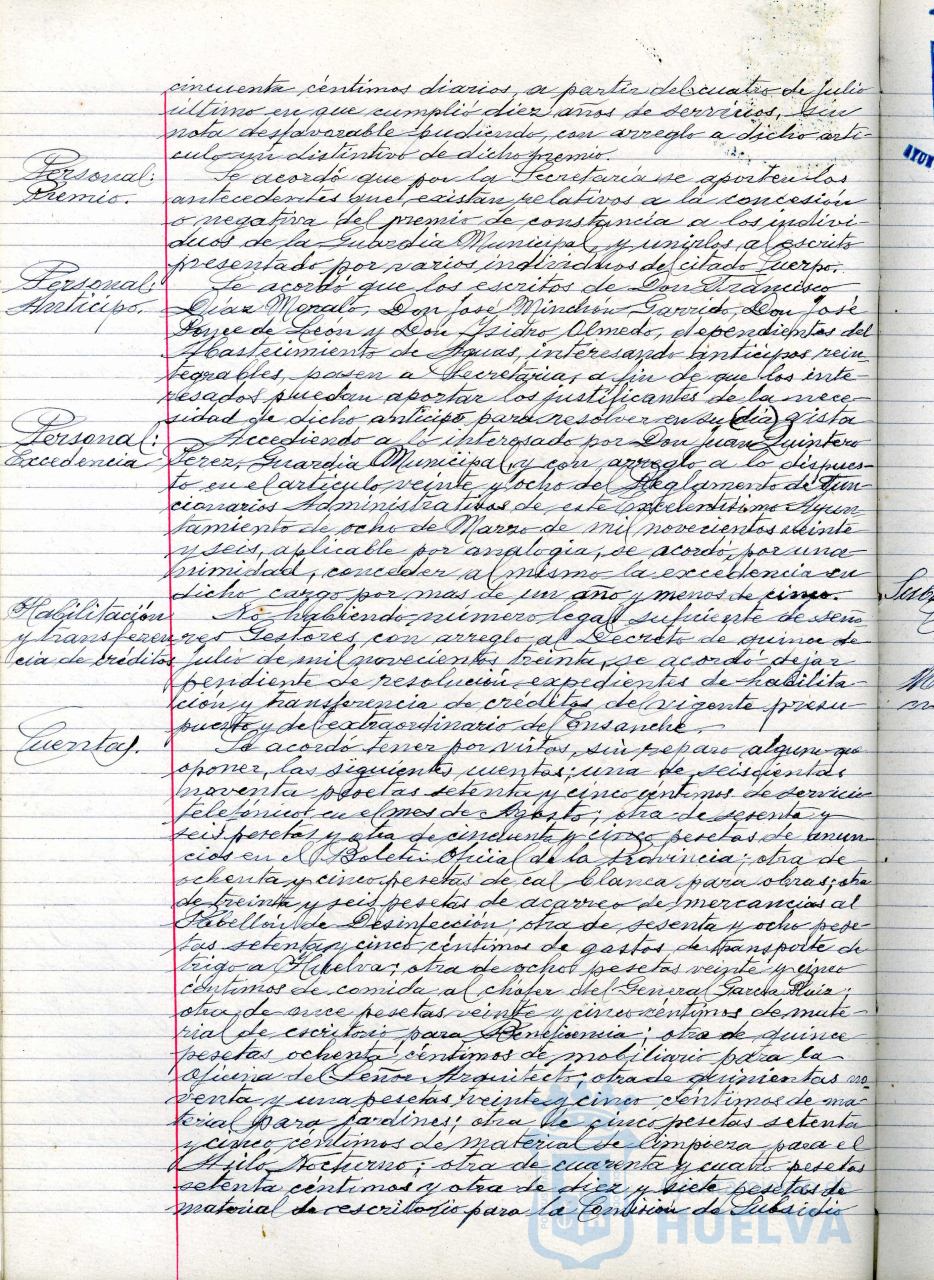 cincuenta céntimos diarios, a partir del cuatro de Julio
último en que cumplió diez años de servicios, sin
nota desfavorable pudiendo, con arreglo a dicho artí-
culo un distintivo de dicho premio.
Personal:
Premio.
Se acordó que por la Secretaría se aporten los
antecedentes que existan relativos a la concesión
o negativa del premio de constancia a los indivi-
duos de la Guardia Municipal, y unirlos al escrito
presentado por varios individuos del citado Cuerpo.
Personal:
Anticipo.
Se acordó que los escritos de Don Francisco
Díaz Morato, Don José Minchón Garrido, Don José
Ponce de Leon y Don Ysidro Olmedo, dependientes del
Abastecimiento de Aguas, interesando anticipos rein-
tegrables, pasen a Secretaria, a fin de que los inte-
resados puedan aportar los justificantes de la nece-
sidad de dicho anticipo para resolver en su (día)
Personal:
Excedencia
Accediendo a lo interesado por Don Juan Quintero
Perez, Guardia Municipal, y con arreglo a lo dispues-
to en el artículo veinte y ocho del Reglamento de Fun-
cionarios Administrativos de este Excelentísimo Ayun-
tamiento de ocho de Marzo de mil novecientos veinte
y seis, aplicable por analogia, se acordó, por una-
nimidad, conceder al mismo la excedencia en
dicho cargo por mas de un año y menos de cinco.
Habilitación
y transferen-
cia de créditos
No habiendo número legal suficiente de seño-
res Gestores, con arreglo al Decreto de quince de
Julio de mil novecientos treinta, se acordó dejar
pendiente de resolución expedientes de habilita-
ción y transferencia de créditos de vigente presu-
puesto y del extraordinario de Ensanche.
Cuentas.
Se acordó tener por vistas, sin reparo algun que
oponer, las siguientes cuentas; una de seiscientas
noventa pesetas setenta y cinco centimos de servicio
telefónico en el mes de Agosto; otra de sesenta y
seis pesetas y otra de cincuenta y cinco pesetas de anun-
cios en el Boletín Oficial de la Provincia; otra de
ochenta y cinco pesetas de cal blanca para obras; otra
de treinta y seis pesetas de acarreo de mercancías al
Pabellón de Desinfección; otra de sesenta y ocho pese-
tas setenta y cinco céntimos de gastos de transporte de
trigo a Huelva; otra de ochos pesetas veinte y cinco
céntimos de comida al chófer del General García Ruiz;
otra de once pesetas veinte y cinco céntimos de mate-
rial de escritorio para Beneficencia; otra de quince
pesetas ochenta céntimos de mobiliario para la
Oficina del Señor Arquitecto; otra de quinientas no-
venta y una pesetas veinte y cinco céntimos de ma-
terial para jardines; otra de cinco pesetas setenta
y cinco céntimos de material de limpieza para el
Asilo Nocturno; otra de cuarenta y cuatro pesetas
setenta céntimos y otra de diez y siete pesetas de
material de escritorio para la Comisión de Subsidio
HUELVA